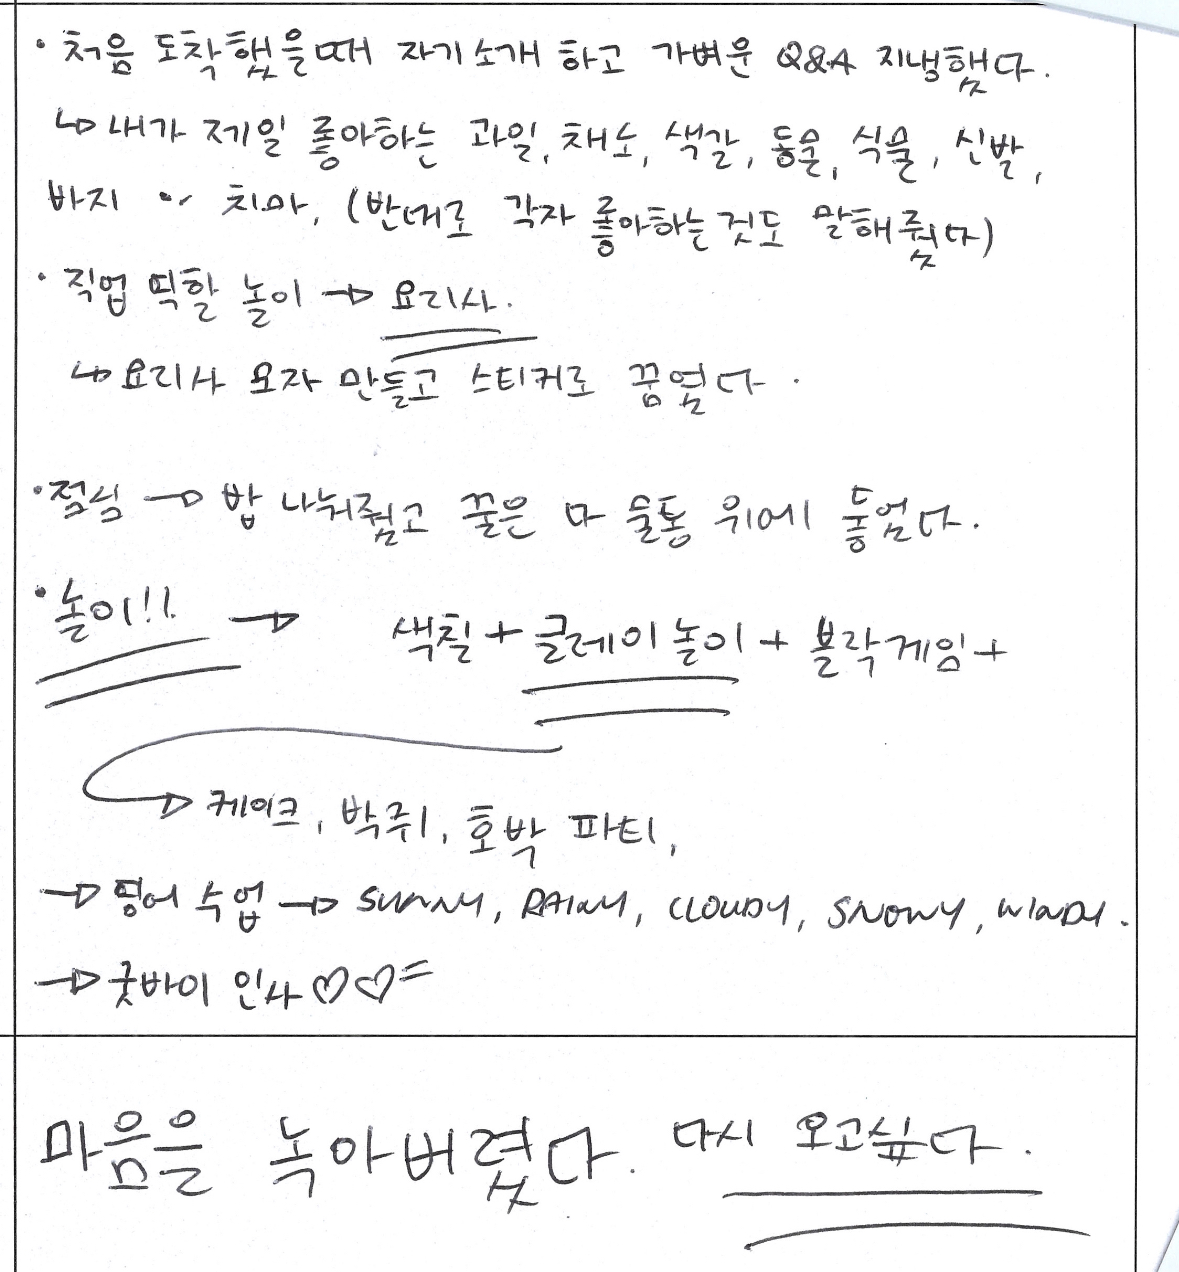 • 처음 도착했을때 자기소개 하고 가벼운 Q&A 지냉했다.
↳ 내가 제일 좋아하는 과일, 채소, 색갈, 동물, 식물, 신발,
바지 or 치마, (반대로 각자 좋아하는 것도 말해줬다)
• 직업 띡할 놀이 → 요리사.
↳ 요리사 모자 만들고 스티커로 꿈엿다.
• 점심 → 밥 나눠줬고 꿀은 다 물통 위에 뒀었다.
• 놀이!! → 색칠 + 클레이 놀이 + 볼락게임 +
→ 케이크, 박쥐, 호박 파티,
→ 띵어 수업 → SUNNY, RAINY, CLOUDY, SNOWY, WINDY.
→ 굿바이 인사 ♡♡=
마음을 녹아버렸다. 다시 오고싶다.